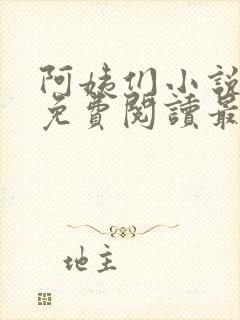 阿姨们小說
免費閱讀最
地主